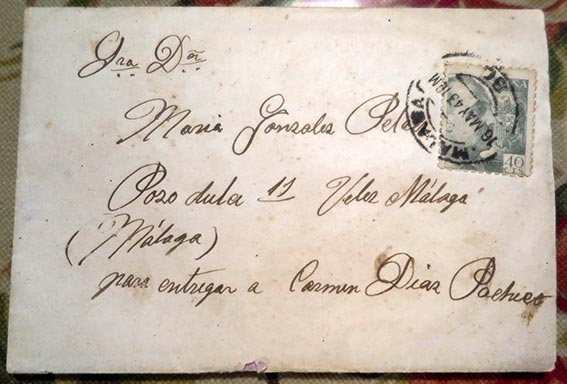 Sra Dña
Maria Gonzalez
Pozo dula 11 Velez Málaga
(Málaga)
para entregar a Carmen Diaz Pacheco
MALAGA
16 MAY 43 10M
40
CTS